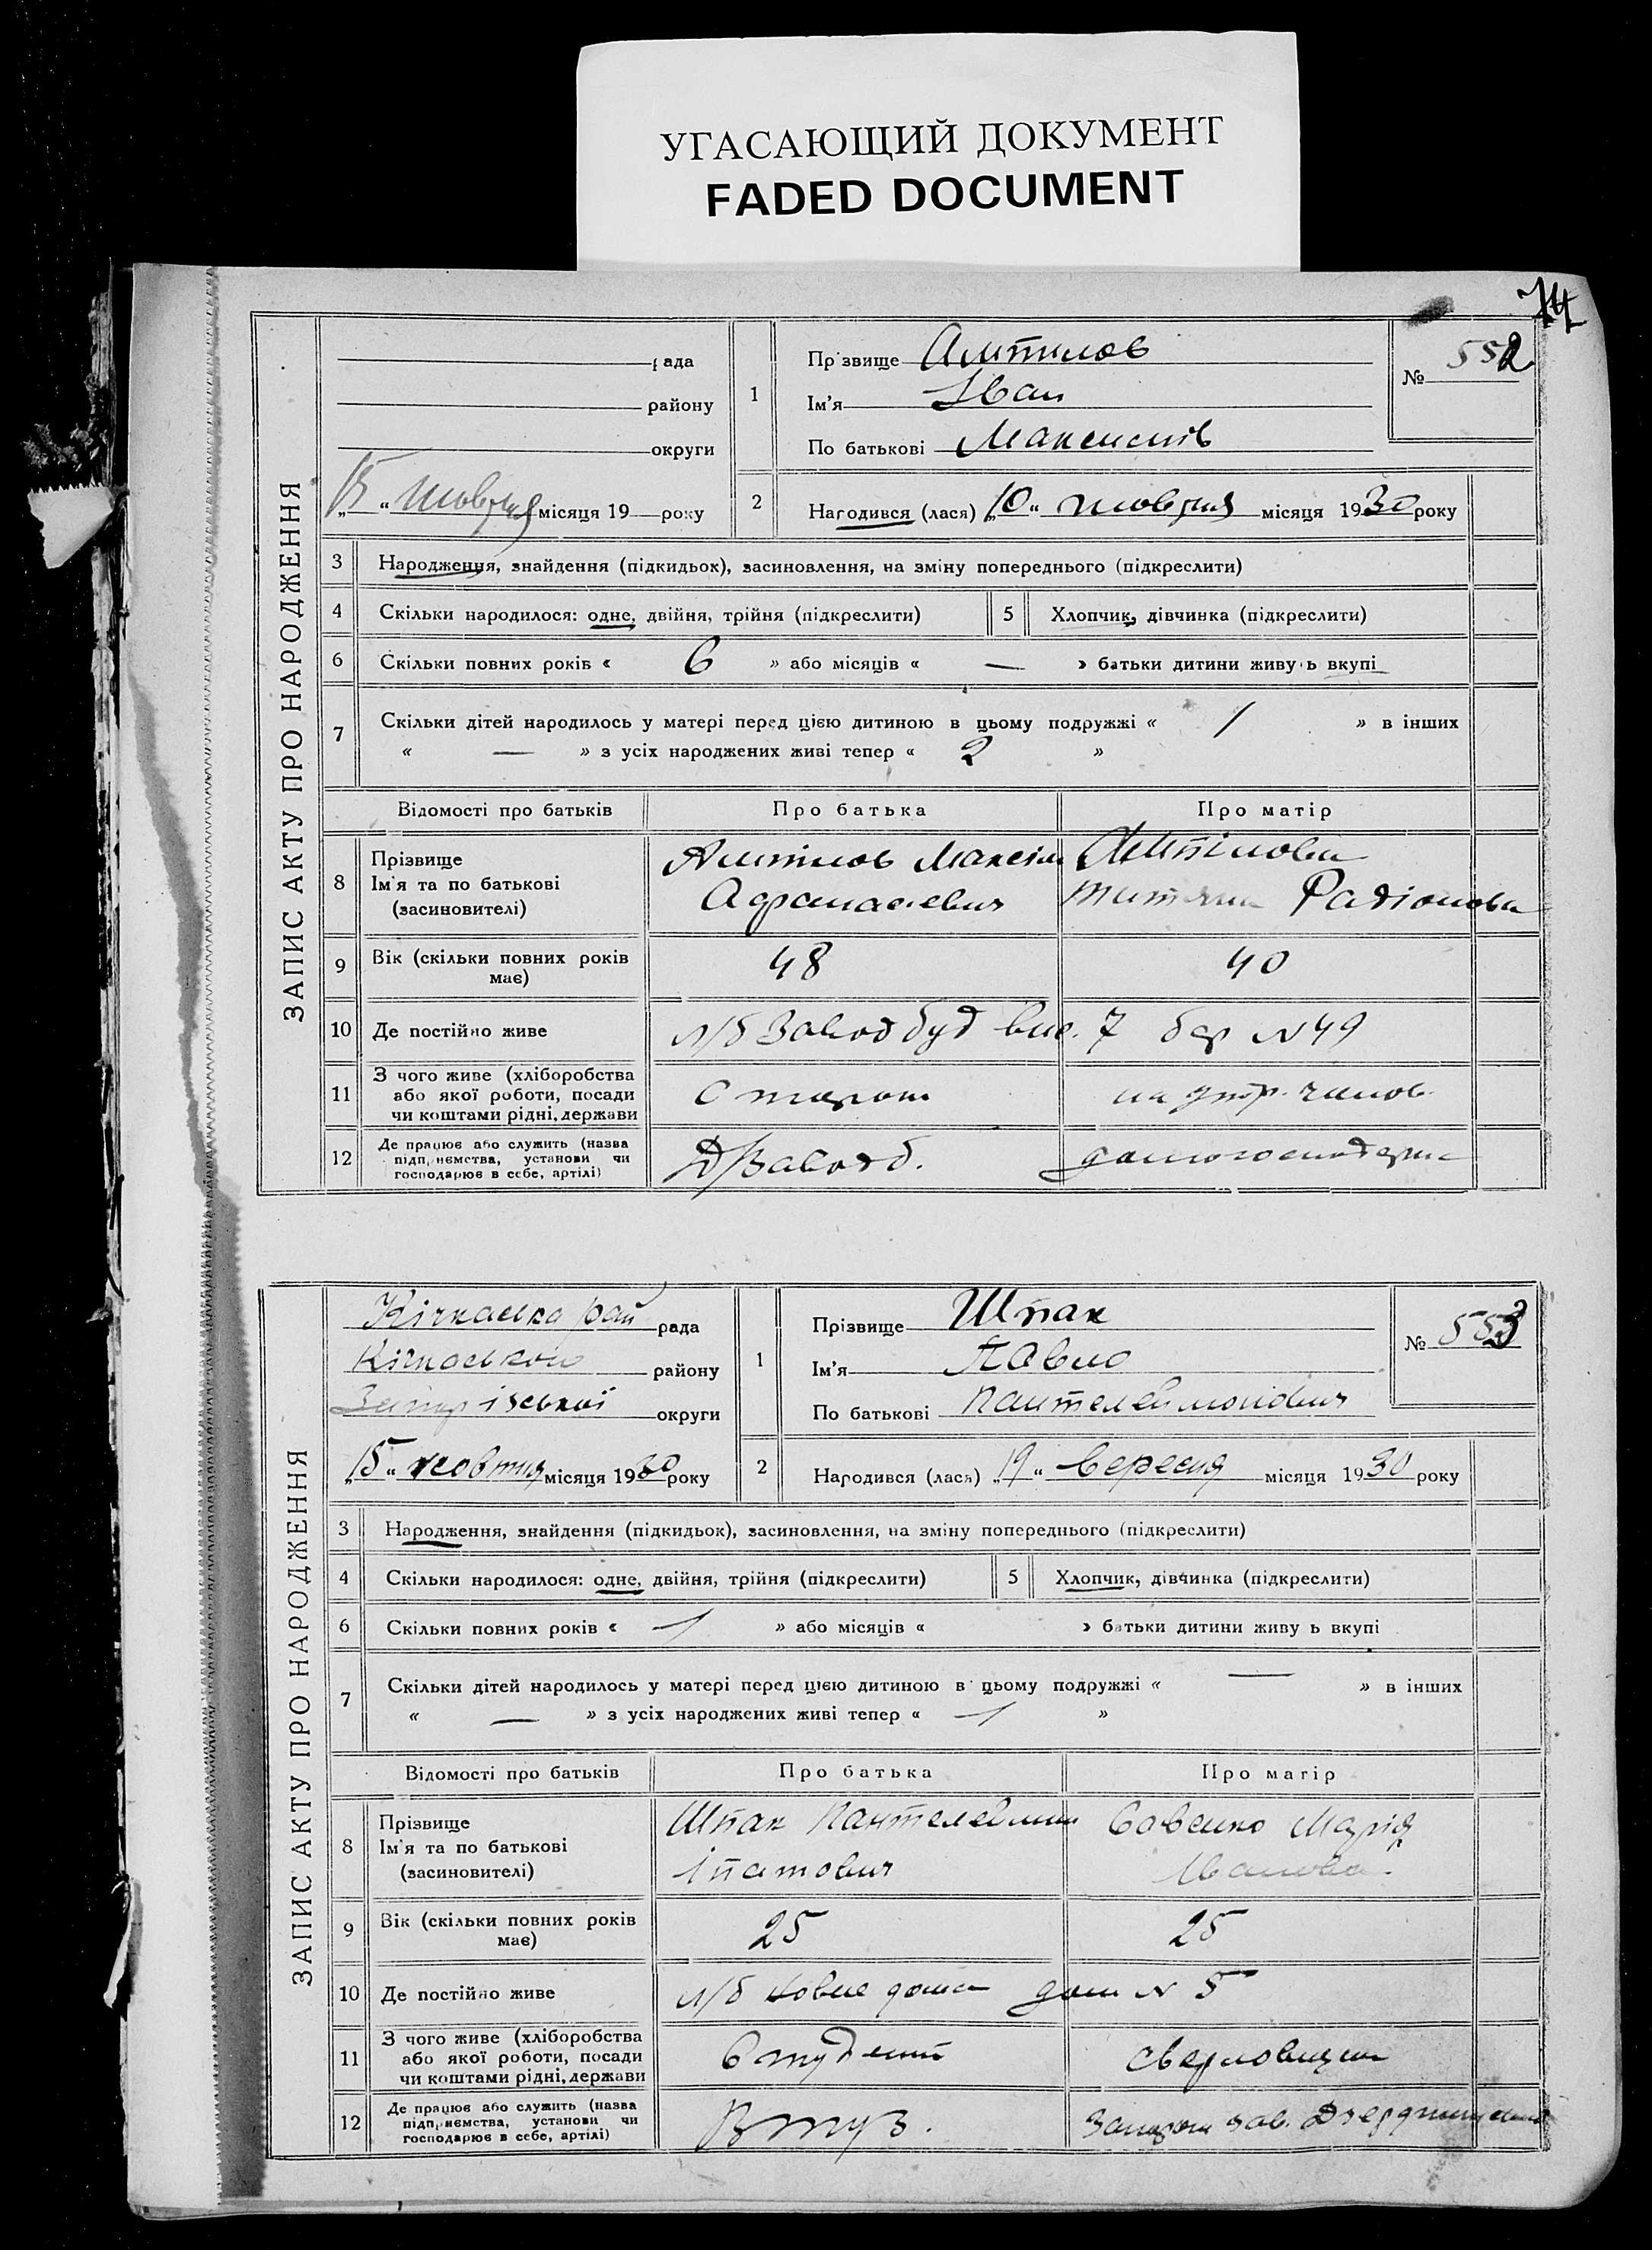 УГАСАЮЩИЙ ДОКУМЕНТ
FADED DOCUMENT
74
ЗАПИС АКТУ ПРО НАРОДЖЕННЯ
рада
району
округи
„15“ жовтня місяця 19 року
1
Прізвище
Ім'я Іван
По батькові
№ 552
2
Народився (лася) „10“ жовтня місяця 1930 року
3 Народження, знайдення (підкидьок), засиновлення, на зміну попереднього (підкреслити)
4 Скільки народилося: одне, двійня, трійня (підкреслити) 5 Хлопчик, дівчинка (підкреслити)
6 Скільки повних років « 6 » або місяців « — » батьки дитини живуть вкупі
7 Скільки дітей народилось у матері перед цією дитиною в цьому подружжі « 1 » в інших
« — » з усіх народжених живі тепер « 2 »
Відомості про батьків Про батька Про матір
8 Прізвище
Ім'я та по батькові
(засновителі)
Максім
Афанасиевич
Радіонова
9 Вік (скільки повних років має) 48 40
10 Де постійно живе л/б Заводбуд вис. 7 бар N 49
11 З чого живе (хліборобства
або якої роботи, посади
чи коштами рідні, держави
на утр. чолов.
12 Де працює або служить (назва
підприємства, установи чи
господарює в себе, артілі)
домогосподарка
ЗАПИС АКТУ ПРО НАРОДЖЕННЯ
Кічкаська рай рада
Кічкаської району
Запорізької округи
„15“ жовтня місяця 1930 року
1
Прізвище Шпак
Ім'я Павло
По батькові Пантелеймонович
№ 553
2
Народився (лася) „19“ вересня місяця 1930 року
3 Народження, знайдення (підкидьок), засиновлення, на зміну попереднього (підкреслити)
4 Скільки народилося: одне, двійня, трійня (підкреслити) 5 Хлопчик, дівчинка (підкреслити)
6 Скільки повних років « 1 » або місяців « » батьки дитини живуть вкупі
7 Скільки дітей народилось у матері перед цією дитиною в цьому подружжі « — » в інших
« — » з усіх народжених живі тепер « 1 »
Відомості про батьків Про батька Про матір
8 Прізвище
Ім'я та по батькові
(засиновителі)
Шпак Пантелеймон
Іпатович
Савенко Марія
Іванова.
9 Вік (скільки повних років має) 25 25
10 Де постійно живе л/б Новие дома дом N 5
11 З чого живе (хліборобства
або якої роботи, посади
чи коштами рідні, держави
Студент
12 Де працює або служить (назва
підприємства, установи чи
господарює в себе, артілі)
Втуз.
зав.